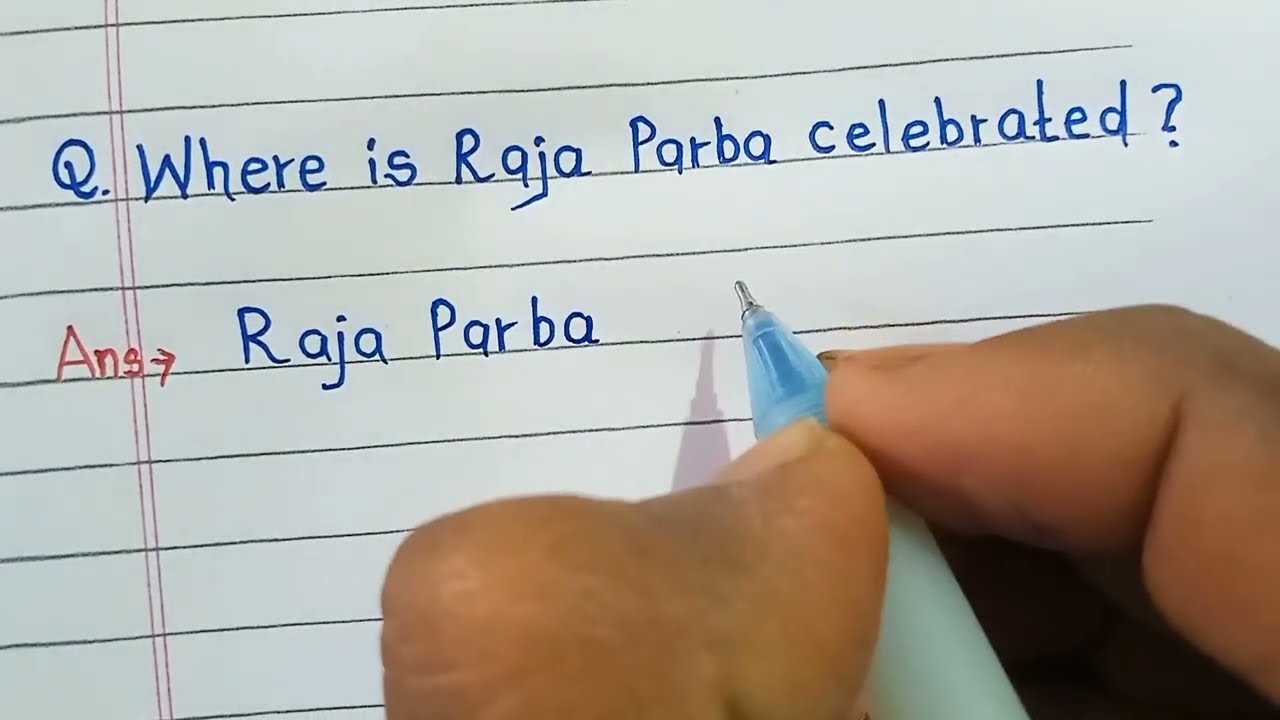 Q. Where is Raja Parba celebrated?
Ans→ Raja Parba